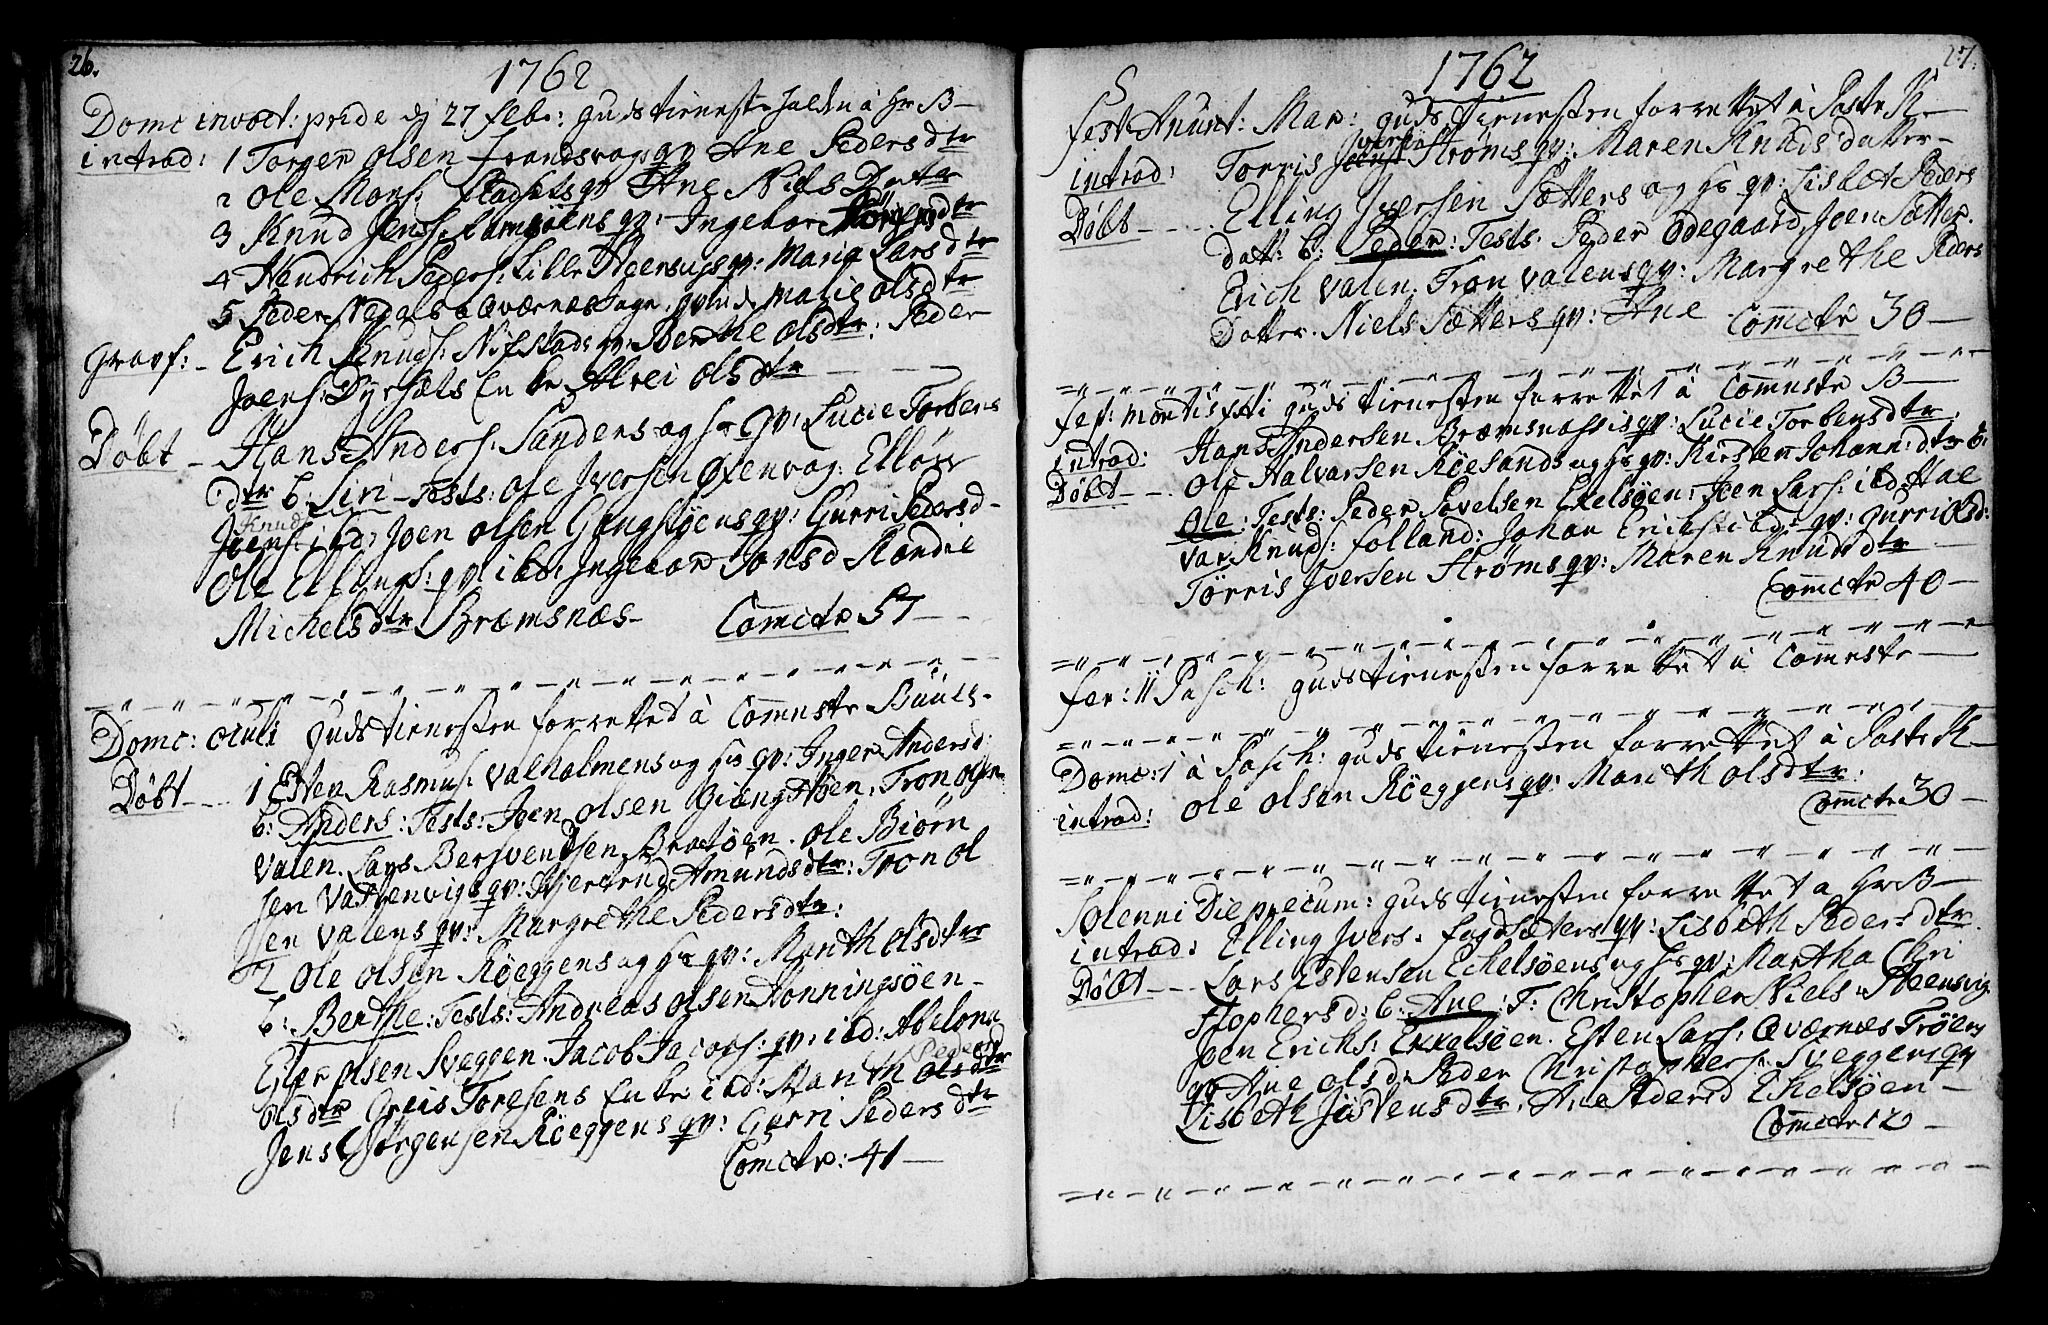 26.
1762
Domc invoct: pride dj 27 febr: gudstienest holden â Hr B-
introd: 1 Torger Olsen qv Ane Peders dtr
2 Ole Mons: qv Ane Niels Datr
3 Knud Jens: qv: Ingebor dtr
4 Hendrich Peders: Lille qv: Maria Lars dtr
5 Peder Qværnes qvinde Malie Ols dtr
Gravf: - Erich Knuds: qv: Berthe Olsdtr: Peder
Joens: Dyrsæts Enke Alrei Olsdtr
Döbt - Hans Anders: Sandens og hs qv: Lucie Torbens
dtr b: Siri - Tests: Ole Jversen Öxenvog: Elling
Knuds
Jvers: ibd: Joen Olsen Giengstöens qv: Gurri Pedersd-
Ole Ellings: qv ibd: Ingebor Jonsd
Michelsdtr Bræmsnæs- Comctr 57 -
Domc: Oculi gudstienesten forretted â Comnstr Buües-
Döbt -- 1 Esten Rasmus: Valholmens og hs qv: Inger Andersd:
b: Anders: Tests: Joen Olsen Giengstöen, Tron Olsen
Valen. Lars Bersvendsen Bratöen. Ole Biörn
sen Vattenvigs qv: Amundsdtr: Tron Ol
sen Valens qv: Margrethe Pedersdtr:
2 Ole Olsen Röeggens og hs qv: Marith Olsdtr
b: Berthe: Tests: Andreas Olsen Honningsöen -
Olsen Sveggen. Jacob Jacobs: qv: ibd: Abelona
Peders
Olsdtr Greis Toresens Enke ibd: Marith Olsdtr
Jens Jörgensen Röeggens qv: Gurri Peders dtr
Comctr: 41 -
27.
1762
Fest Anunt: Mar: gudstienesten forrettet â Poste K-
Jvers:
introd: Torris Jens: Ströms qv: Maren Knuds datter-
Döbt -- Elling Jversen Sætters og hs qv: Lisbet Peders
datt: b: Peder: Tests: Peder Ödegaard, Joen Sætter.
Erich Valen. Tron Valens qv: Margrethe Peders
Datter. Niels Sætters qv: Ane Comctr 30 -
Fest: gudstienesten forrettet â Comnstr B -
introd: Hans Andersen Bræmsnæssis qv: Lucie Torbensdtr
Döbt -- Ole Halvarsen Röesands og hs qv: Kirsten Johann: dtr b:
Ole: Tests: Peder Povelsen Ekelsöen: Joen Lars: ibd: Hal
var Knuds: Folland: Johan Erichs: ibd: qv: Gurri Olsd:
Törris Jversen Ströms qv: Maren Knudsdtr
Comctr 40 -
Fer: II Pasch: gudstienesten forrettet â Comnstr -
Domc: 1 â Pasch: gudstienesten forrettet â Poste K -
introd: Ole Olsen Röeggens qv: Marith Olsdtr:
Comctr 30 -
Solenni Die precum: gudstienesten forrettet â Hr B -
introd: Elling Jvers. Fogdsæters qv: Lisbeth Peders dtr
Döbt -- Lars Estensen Eckelsöens og hs qv: Martha Chri
stophersd: b: Ane: T: Christopher Niels: Steensvig
Joen Erichs: Ekkelsöen. Esten Lars: Qværnes Tröens
qv Ane Olsd: Peder Christophers: Sveggens qv
Lisbeth Jöstensdtr. Ane Pedersd Ekelsöen -
Comctr 120 -